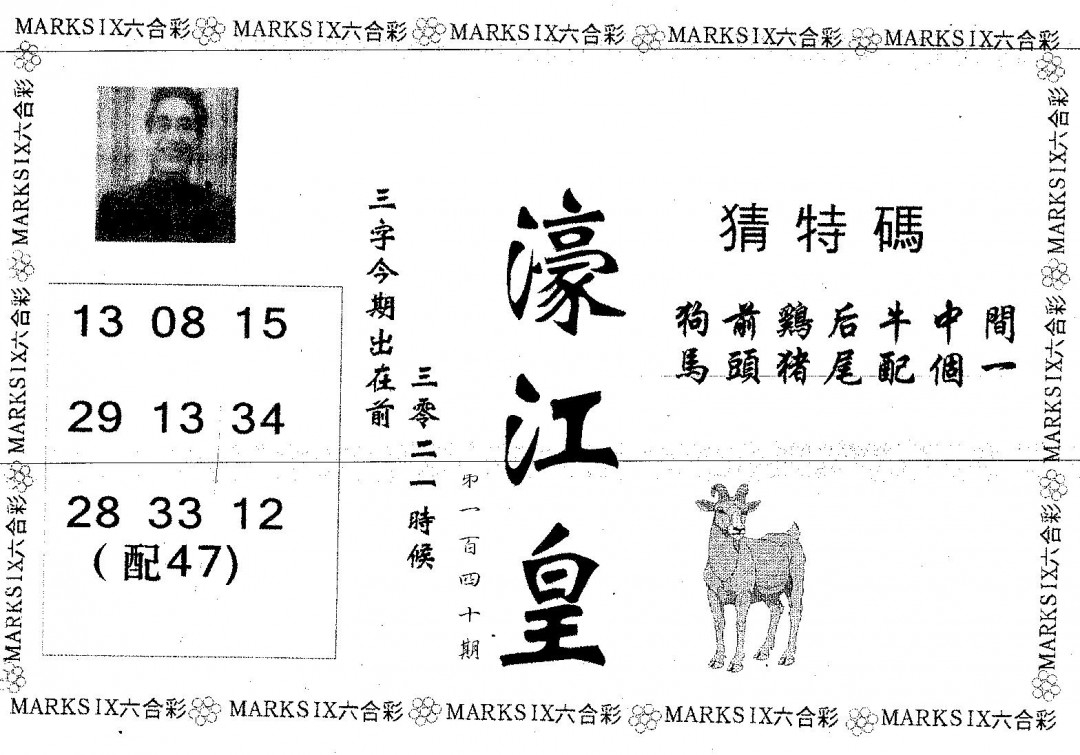 MARKSIX六合彩 MARKSIX六合彩 MARKSIX六合彩 MARKSIX六合彩 MARKSIX六合彩
MARKSIX六合彩 MARKSIX六合彩 MARKSIX六合彩
猜特碼
狗前鷄后牛中間
馬頭猪尾配個一
濠江皇
第一百四十期
三字今期出在前
三零二一時候
13 08 15
29 13 34
28 33 12
(配47)
MARKSIX六合彩 MARKSIX六合彩 MARKSIX六合彩
MARKSIX六合彩 MARKSIX六合彩 MARKSIX六合彩 MARKSIX六合彩 MARKSIX六合彩